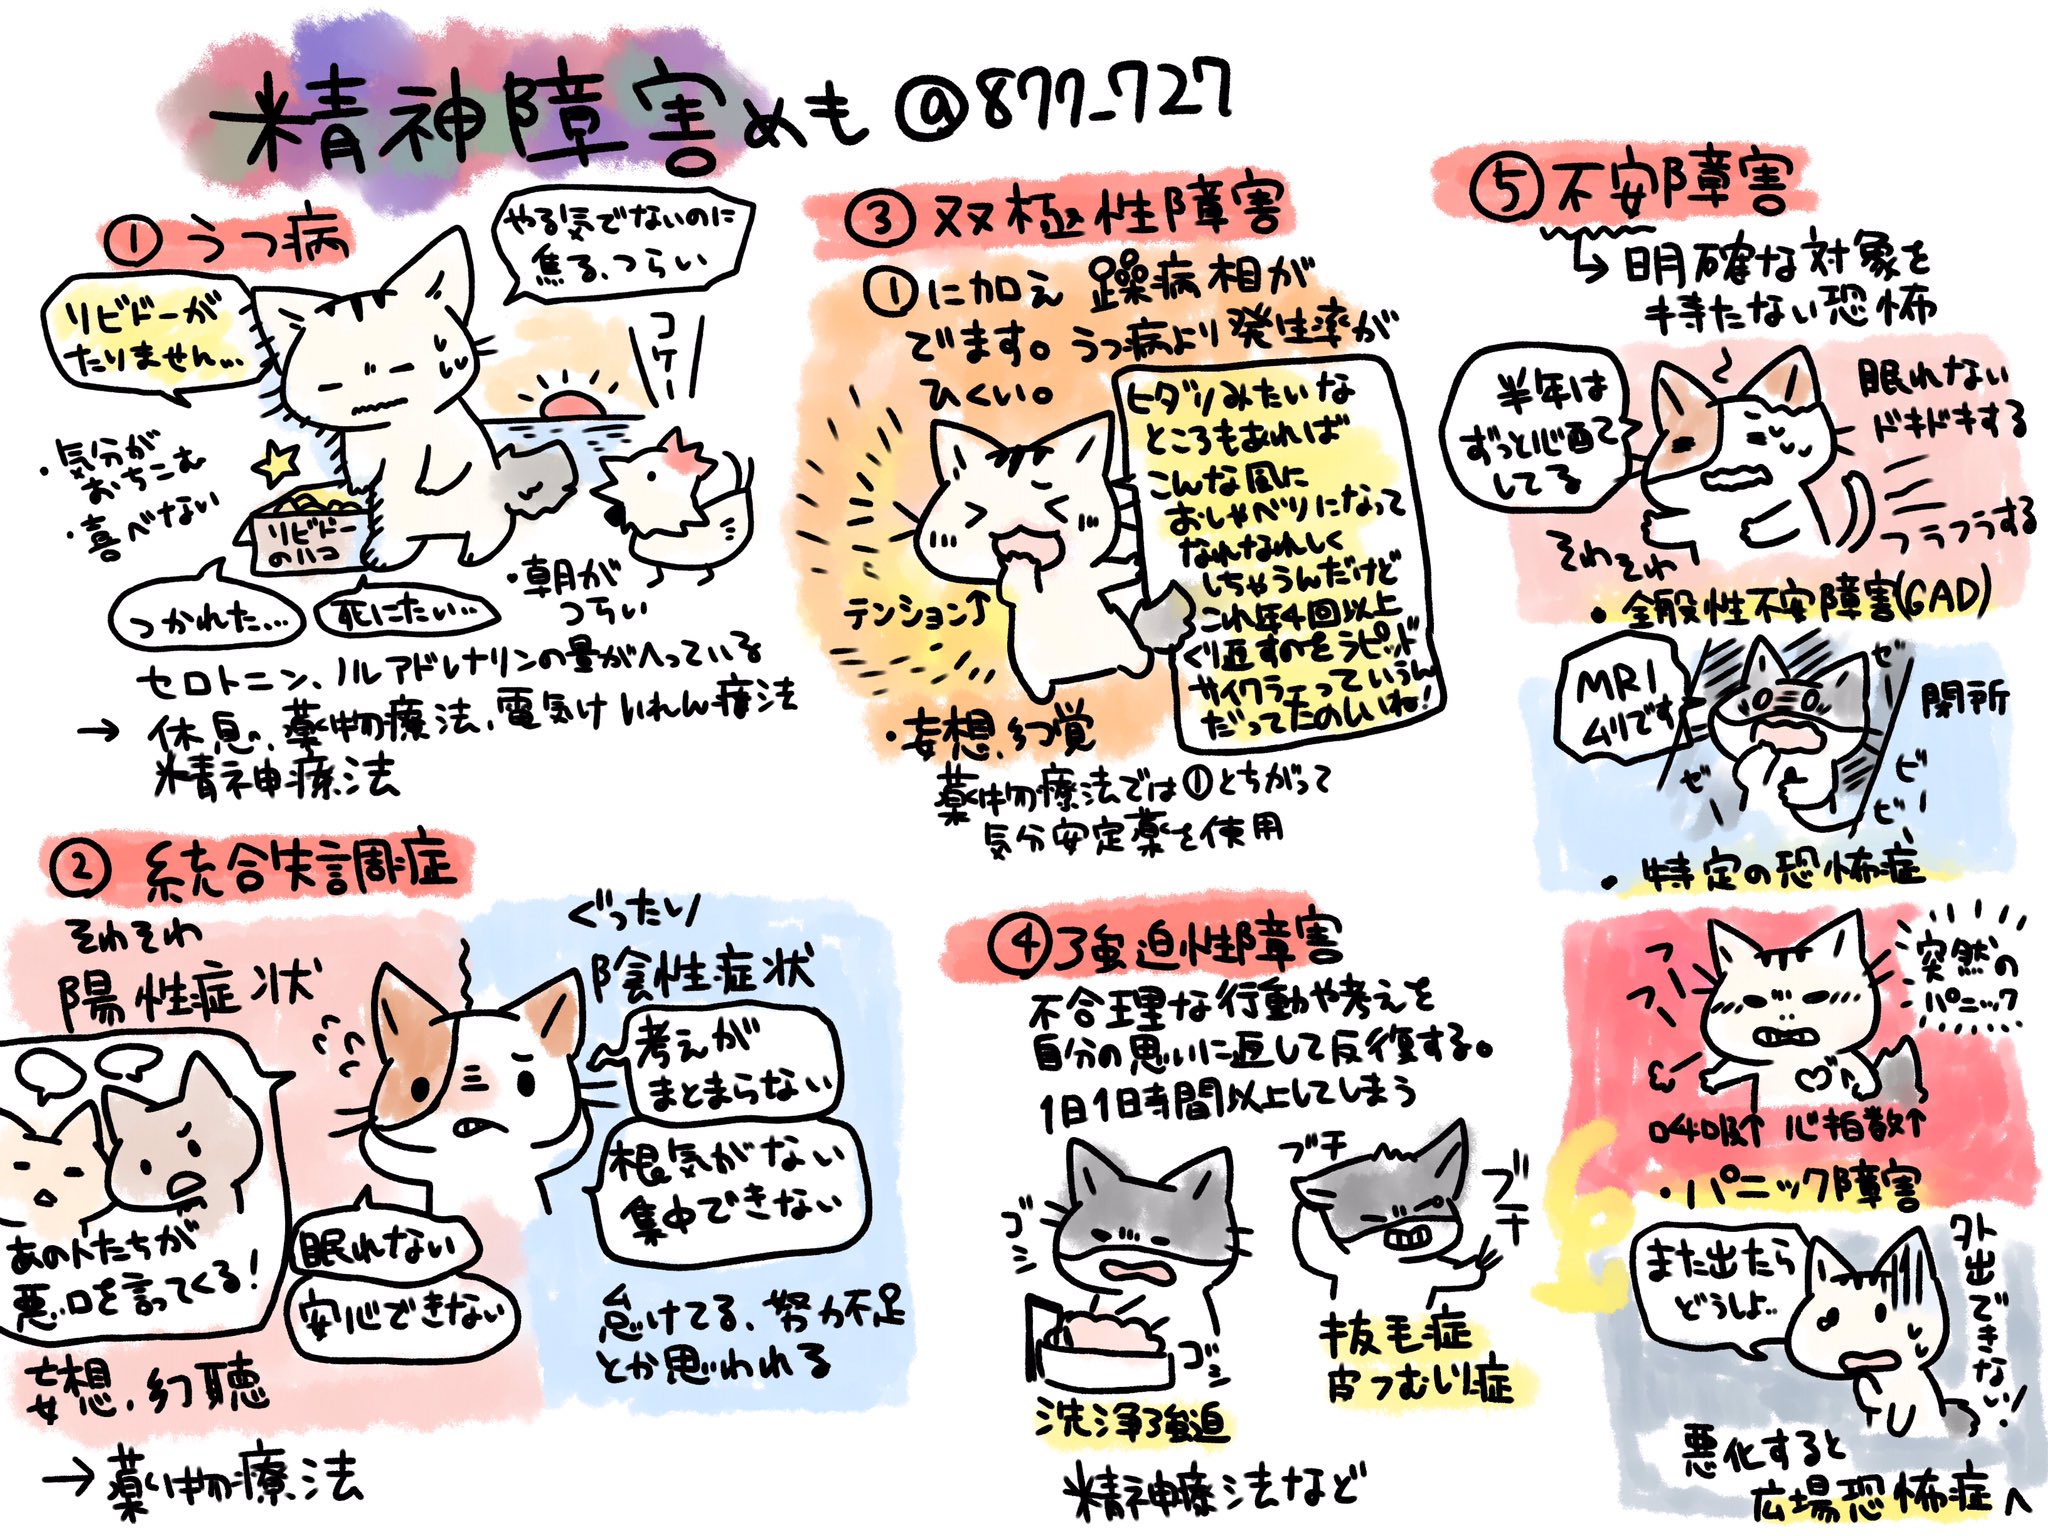 精神障害めも @877_727
① うつ病
リビドーが
たりません…
やる気でないのに
焦る、つらい
コケー
・気分が
おちこむ
・喜べない
リビドー
のハコ
つかれた…
死にたい…
・朝が
つらい
セロトニン、ノルアドレナリンの量がへっている
→ 休息、薬物療法、電気けいれん療法
精神療法
② 統合失調症
そわそわ
陽性症状
あの人たちが
悪口を言ってくる!
眠れない
安心できない
妄想、幻聴
→薬物療法
ぐったり
陰性症状
考えが
まとまらない
根気がない
集中できない
怠けてる、努力不足
とか思われる
③ 双極性障害
①に加え 躁病相が
でます。うつ病より発生率が
ひくい。
テンション↑
ヒダリみたいな
ところもあれば
こんな風に
おしゃべりになって
なれなれしく
しちゃうんだけど
これ年4回以上
くり返すのをラピッド
サイクラーっていうん
だってたのしいね!
・妄想、幻覚
薬物療法では①とちがって
気分安定薬を使用
④強迫性障害
不合理な行動や考えを
自分の思いに反して反復する。
1日1時間以上してしまう
ゴシ
ゴシ
洗浄強迫
ブチ
ブチ
抜毛症
皮ふむしり症
精神療法など
⑤不安障害
→明確な対象を
持たない恐怖
半年は
ずっと心配で
してる
眠れない
ドキドキする
フラフラする
そわそわ
・全般性不安障害(GAD)
MRI
ムリです
閉所
ゼー
ゼー
ビー
ビー
・特定の恐怖症
フー
フー
突然の
パニック
呼吸↑ 心拍数↑
・パニック障害
また出たら
どうしよ…
外出できない!
悪化すると
広場恐怖症へ